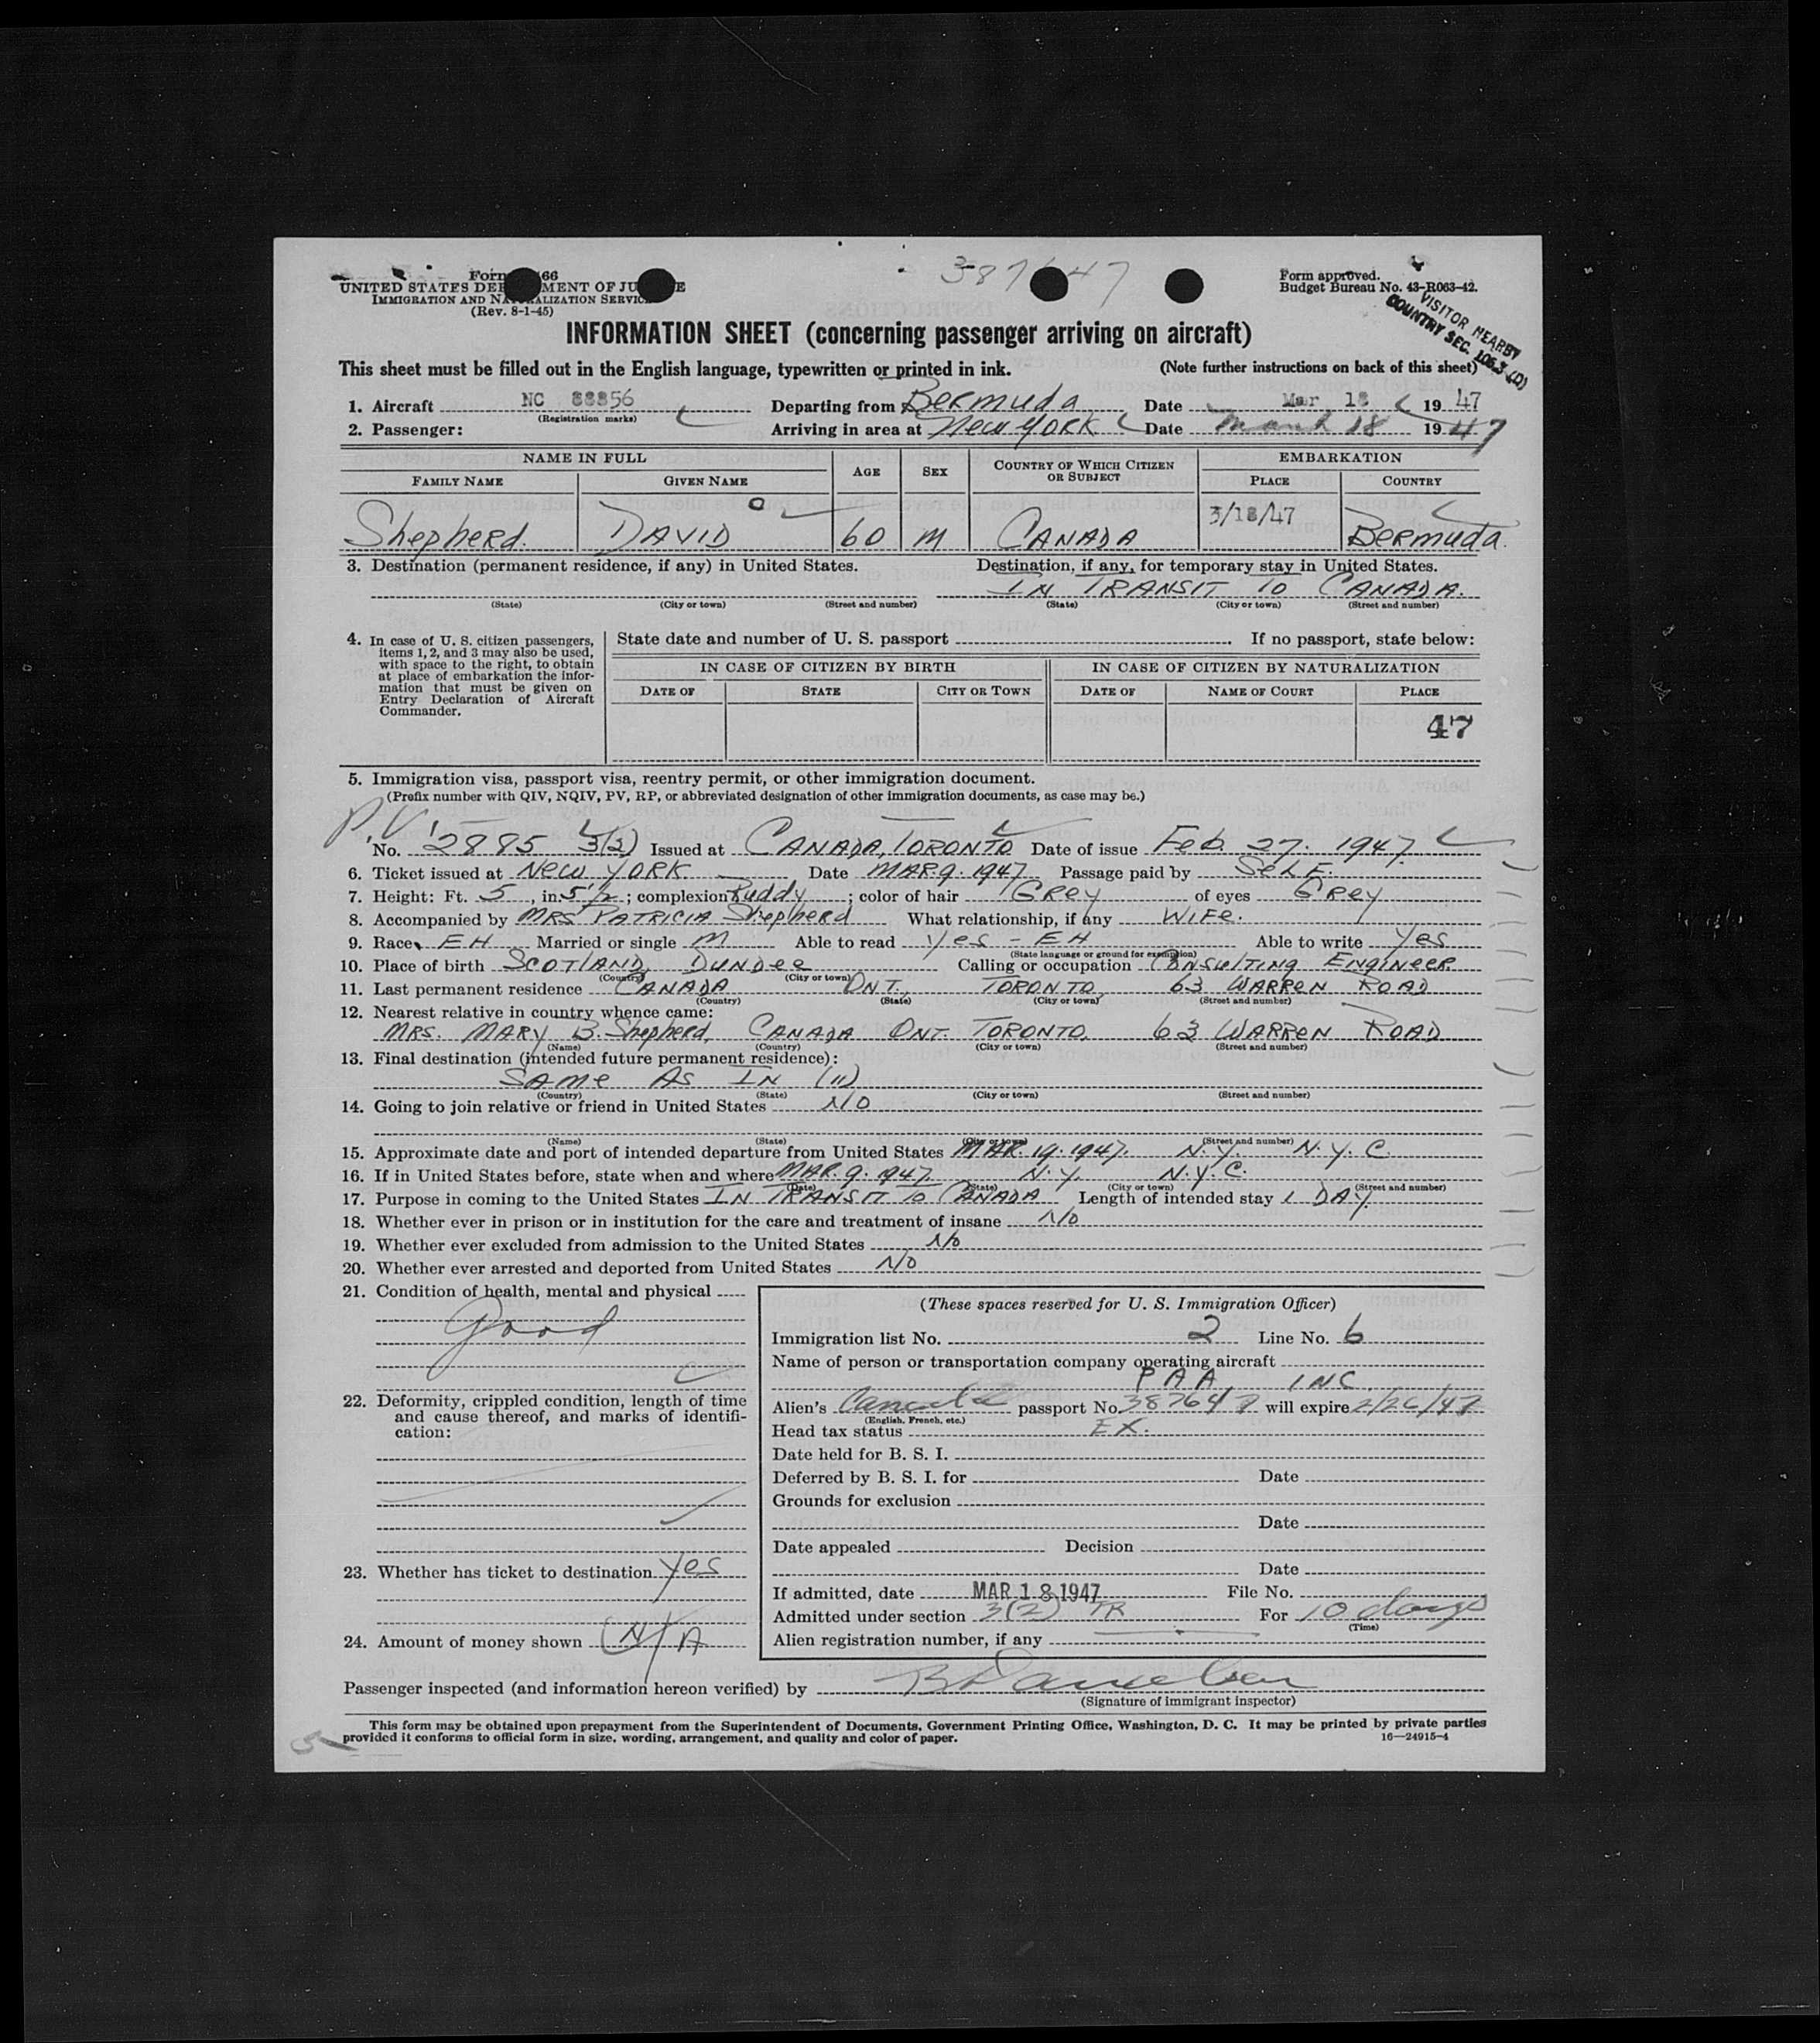 387647
Form approved.
Budget Bureau No. 43-R063-42.
UNITED STATES DEPARTMENT OF JUSTICE
IMMIGRATION AND NATURALIZATION SERVICE
(Rev. 8-1-45)
VISITOR NEARBY
COUNTRY SEC. 106.3 (D)
INFORMATION SHEET (concerning passenger arriving on aircraft)
This sheet must be filled out in the English language, typewritten or printed in ink. (Note further instructions on back of this sheet)
1. Aircraft NC 88856 Departing from Bermuda Date Mar 18 1947
(Registration marks)
2. Passenger: Arriving in area at New YORK Date March 18 1947
NAME IN FULL AGE SEX COUNTRY OF WHICH CITIZEN OR SUBJECT EMBARKATION
FAMILY NAME GIVEN NAME PLACE COUNTRY
Shepherd. DAVID 60 M CANADA 3/18/47 Bermuda.
3. Destination (permanent residence, if any) in United States. Destination, if any, for temporary stay in United States.
IN TRANSIT TO CANADA.
(State) (City or town) (Street and number) (State) (City or town) (Street and number)
4. In case of U. S. citizen passengers, items 1, 2, and 3 may also be used, with space to the right, to obtain at place of embarkation the information that must be given on Entry Declaration of Aircraft Commander.
State date and number of U. S. passport If no passport, state below:
IN CASE OF CITIZEN BY BIRTH IN CASE OF CITIZEN BY NATURALIZATION
DATE OF STATE CITY OR TOWN DATE OF NAME OF COURT PLACE
47
5. Immigration visa, passport visa, reentry permit, or other immigration document.
(Prefix number with QIV, NQIV, PV, RP, or abbreviated designation of other immigration documents, as case may be.)
P.V.
No. 2885 3(2) Issued at CANADA, TORONTO Date of issue Feb. 27. 1947.
6. Ticket issued at New YORK Date MAR 9. 1947 Passage paid by SeLF.
7. Height: Ft. 5, in. 5 1/2; complexion Ruddy; color of hair GRey of eyes GRey
8. Accompanied by MRS PATRICIA Shepherd What relationship, if any WIFe.
9. Race EH Married or single M Able to read Yes - EH Able to write Yes
(State language or ground for exemption)
10. Place of birth SCOTLAND, DUNDee Calling or occupation CONSULTING ENGINEER
(Country) (City or town)
11. Last permanent residence CANADA ONT., TORONTO, 63 WARREN ROAD
(Country) (State) (City or town) (Street and number)
12. Nearest relative in country whence came:
MRS. MARY B. Shepherd, CANADA ONT. TORONTO, 63 WARREN ROAD
(Name) (Country) (City or town) (Street and number)
13. Final destination (intended future permanent residence):
SAMe AS IN (11)
(Country) (State) (City or town) (Street and number)
14. Going to join relative or friend in United States NO
(Name) (State) (City or town) (Street and number)
15. Approximate date and port of intended departure from United States MAR. 19. 1947. N.Y. N.Y.C.
16. If in United States before, state when and where MAR. 9. 1947. N.Y. N.Y.C.
(Date) (State) (City or town) (Street and number)
17. Purpose in coming to the United States IN TRANSIT TO CANADA Length of intended stay 1 DAY.
18. Whether ever in prison or in institution for the care and treatment of insane No
19. Whether ever excluded from admission to the United States No
20. Whether ever arrested and deported from United States No
21. Condition of health, mental and physical
Good
22. Deformity, crippled condition, length of time and cause thereof, and marks of identification:
23. Whether has ticket to destination Yes
24. Amount of money shown N/A
(These spaces reserved for U. S. Immigration Officer)
Immigration list No. 2 Line No. 6
Name of person or transportation company operating aircraft
PAA INC.
Alien's passport No. 387647 will expire 2/26/47
(English, French, etc.)
Head tax status EX.
Date held for B. S. I.
Deferred by B. S. I. for Date
Grounds for exclusion
Date
Date appealed Decision
Date
If admitted, date MAR 18 1947 File No.
Admitted under section 3(2) TR For 10 days
(Time)
Alien registration number, if any
Passenger inspected (and information hereon verified) by
(Signature of immigrant inspector)
This form may be obtained upon prepayment from the Superintendent of Documents, Government Printing Office, Washington, D. C. It may be printed by private parties
provided it conforms to official form in size, wording, arrangement, and quality and color of paper. 16—24915-4